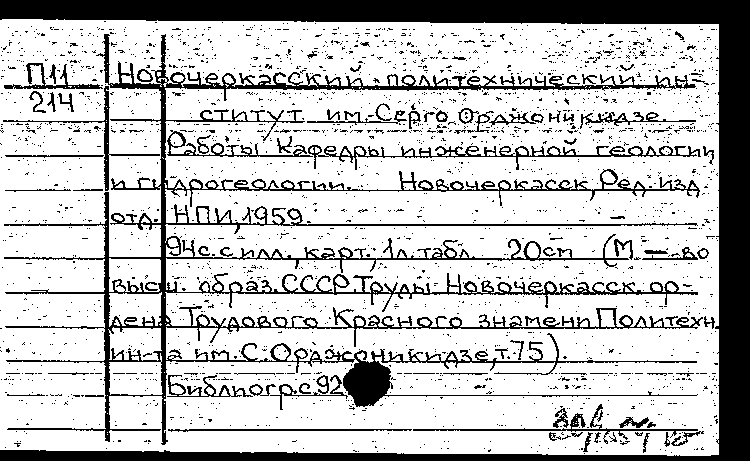 П11 Новочеркасский политехнический ин-
214 ститут им. Серго Орджоникидзе.
Работы кафедры инженерной геологии
и гидрогеологии. Новочеркасск, Ред. изд.
отд. НПИ, 1959.
94с. с илл., карт.; 1л. табл. 20см (М-во
высш. образ. СССР. Труды Новочеркасск. ор-
дена Трудового Красного знамени Политехн.
ин-та им. С. Орджоникидзе, т. 75).
Библиогр. с. 92